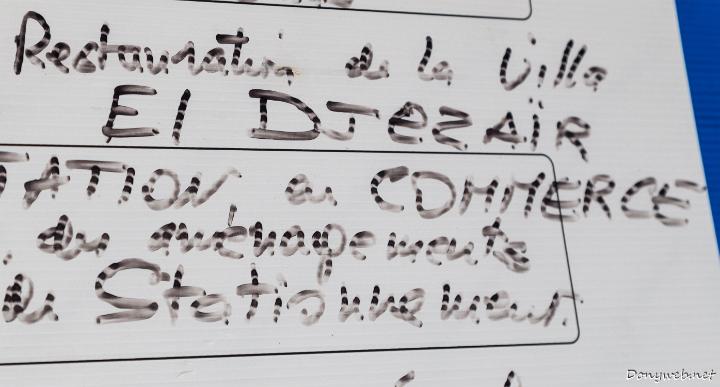 Restauration de la Villa
El DJEZAÏR
TATION du COMMERCE
du aménagements
du Stationnement.
Donyweb.net